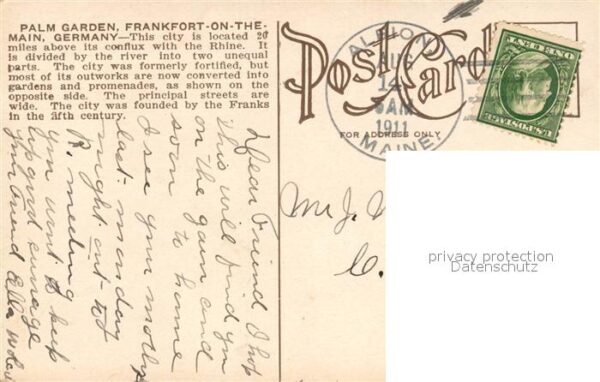 PALM GARDEN, FRANKFORT-ON-THE-
MAIN, GERMANY—This city is located 20
miles above its conflux with the Rhine. It
is divided by the river into two unequal
parts. The city was formerly fortified, but
most of its outworks are now converted into
gardens and promenades, as shown on the
opposite side. The principal streets are
wide. The city was founded by the Franks
in the fifth century.
Post Card
FOR ADDRESS ONLY
ALBION
AUG
14
5AM
1911
MAINE.
U.S. POSTAGE
ONE CENT
Dear Friend I hop
this will find you
on the gain and
soon to home
I see your mother
last monday
night out to
R. meeting
you want to keep
up good curage
your friend Ella
Mr J.
C.
privacy protection
Datenschutz